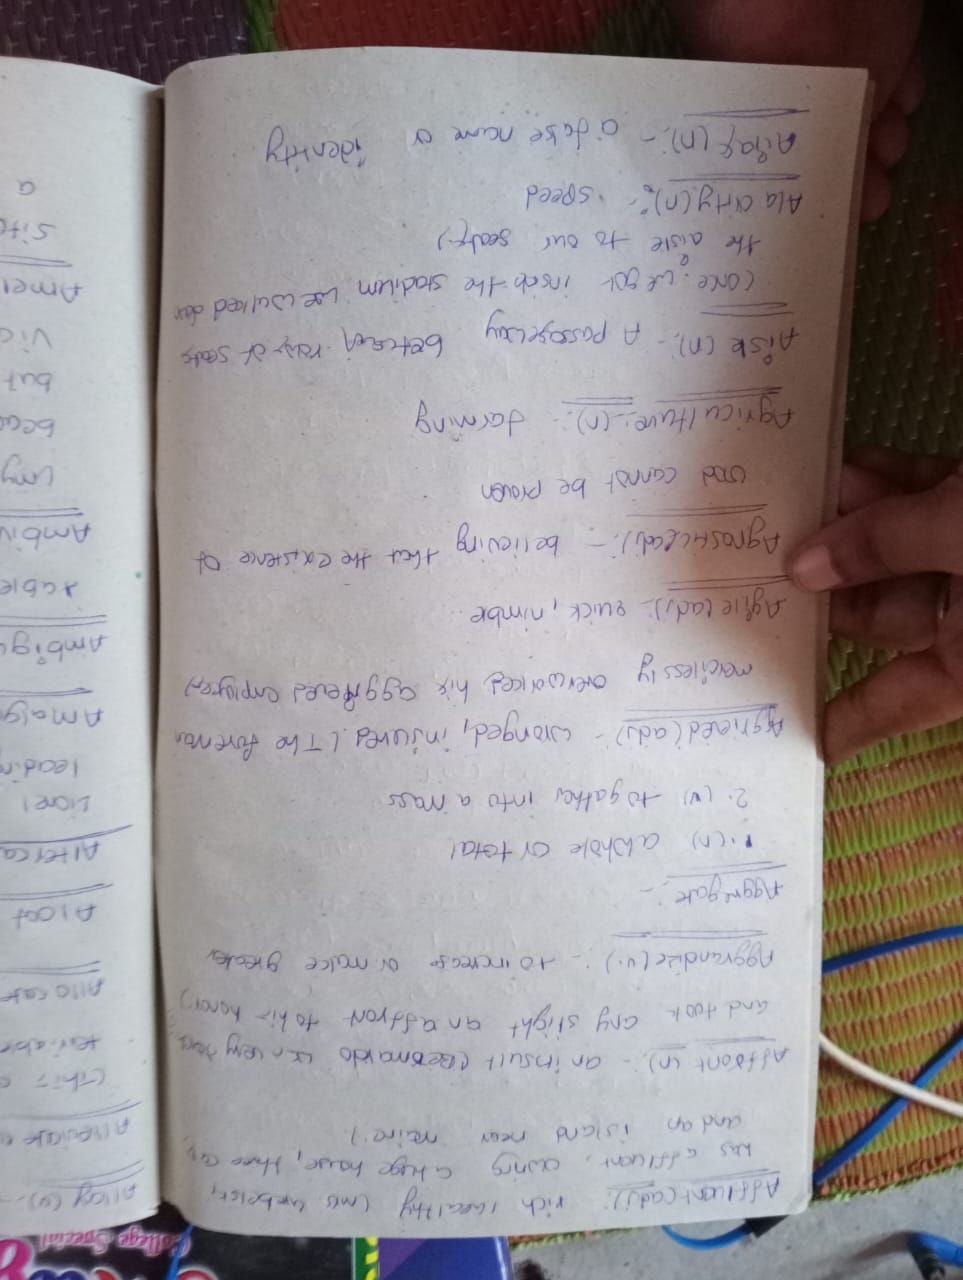 Affluent (adj): rich, wealthy (Ms.
was affluent, owning a huge house, three
and an island near maine.)
Affront (n):- an insult (Bernardo is very
and took any slight an affront to his honor)
Aggrandize (v.):- to increase or make greater
Aggregate :-
1. (n) a whole or total
2. (v) to gather into a mass
Aggrieved (adj) - wronged, injured. (The foreman
mercilessly overworked his aggrieved employees)
Agile (adj):- quick, nimble
Agnostic (adj.) - believing that the existence of
God cannot be proven
Agriculture:- (n):- farming
Aisle (n):- A passageway between rows of seats
(once we got inside the stadium we walked down
the aisle to our seats.)
Alacrity (n):- speed
Alias (n):- a false name or identity
Allay (v) -
Alleviate
(This
Allocate
Aloof
Lionel
leadin
Amalg
Ambigu
Ambiv
but
a
College Special